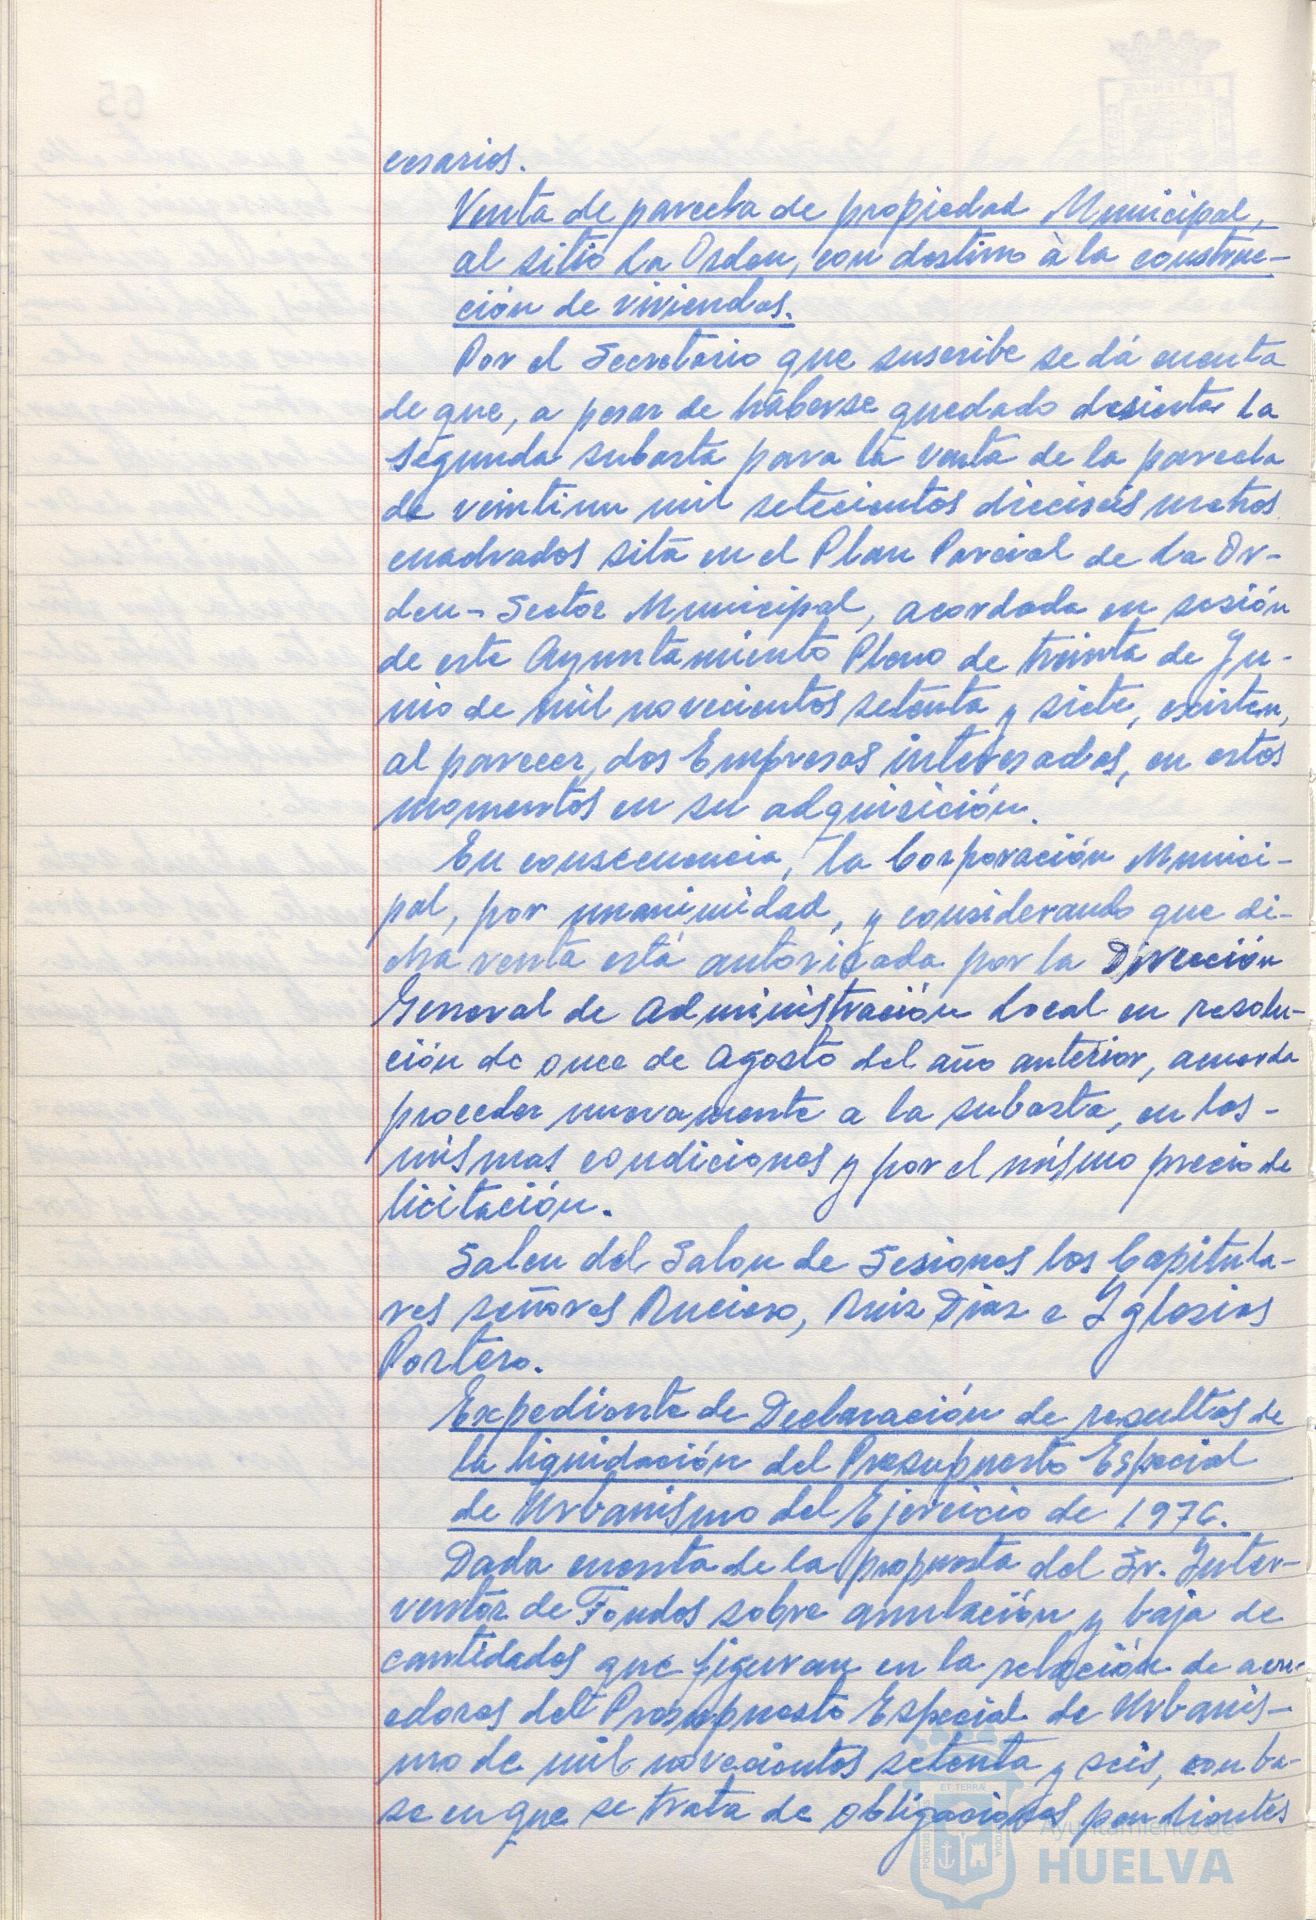 cesarios.
Venta de parcela de propiedad Municipal,
al sitio La Orden, con destino à la construc-
ción de viviendas.
Por el Secretario que suscribe se dá cuenta
de que, a pesar de haberse quedado desierta la
segunda subasta para la venta de la parcela
de veintiun mil setecientos dieciseis metros
cuadrados sita en el Plan Parcial de La Or-
den - Sector Municipal, acordada en sesión
de este Ayuntamiento Pleno de treinta de Ju-
nio de mil novecientos setenta y siete, existen,
al parecer, dos Empresas interesadas, en estos
momentos en su adquisición.
En consecuencia, la Corporación Munici-
pal, por unanimidad, y considerando que di-
cha venta está autorizada por la Dirección
General de Administración Local en resolu-
ción de once de Agosto del año anterior, acuerda
proceder nuevamente a la subasta, en las -
mismas condiciones y por el mismo precio de
licitación.
Salen del Salon de Sesiones los Capitula-
res señores Rucioso, Ruiz Diaz e Yglesias
Portero.
Expediente de Declaración de resultas de
la liquidación del Presupuesto Especial
de Urbanismo del Ejercicio de 1976.
Dada cuenta de la propuesta del Sr. Inter-
ventor de Fondos sobre anulación y baja de
cantidades que figuran en la relación de acre-
edores del Presupuesto Especial de Urbanis-
mo de mil novecientos setenta y seis, con ba-
se en que se trata de obligaciones pendientes
Ayuntamiento de
HUELVA
65